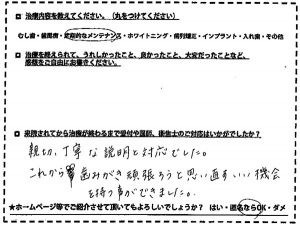 治療内容を教えてください。(丸をつけてください)
むし歯・歯周病・定期的なメンテナンス・ホワイトニング・歯列矯正・インプラント・入れ歯・その他
治療を終えられて、うれしかったこと、良かったこと、大変だったことなど、
感想をご自由にお書きください。
来院されてから治療が終わるまで受付や医師、衛生士のご対応はいかがでしたか?
親切、丁寧な説明と対応でした。
これから歯みがき頑張ろうと思い直すいい機会
を持つ事ができました。
★ホームページ等でご紹介させて頂いてもよろしいでしょうか? はい・匿名ならOK・ダメ